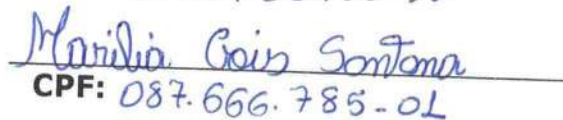 Marilia Gois Santana
CPF: 087.666.785-01